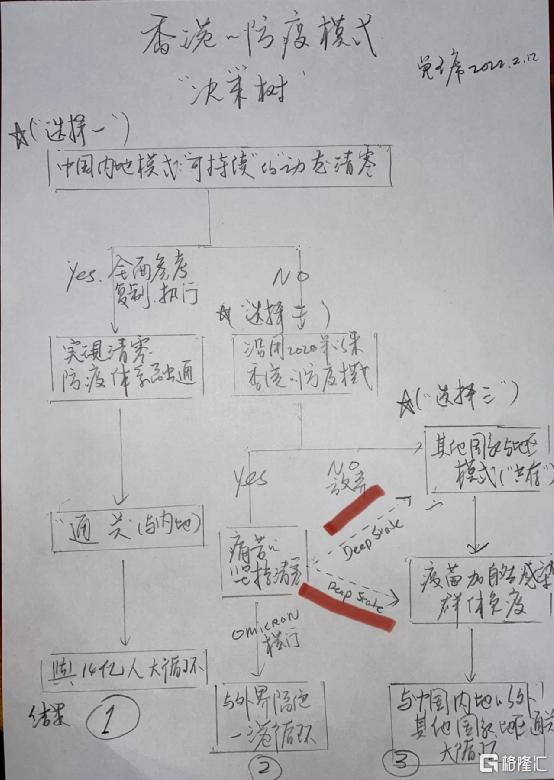 香港心防疫模式
"决策树"
2022.2.12
☆("选择一")
中国内地模式"可持续"的"动态清零"
Yes. 全面参考
复制.执行
NO
☆"选择二")
实现清零
防疫体系融通
沿用2020年以来
香港心防疫模式
☆("选择三")
其他国家与地区
模式("共存")
yes
NO
放弃
"通关(与内地)
痛苦心
坚持清零
Deep State
Deep State
疫苗加自然感染
群体免疫
OMICRON
横行
与14亿人大循环
与外界隔绝
一港循环
与中国内地以外
其他国家地区通关
大循环
结果
①
②
③
格隆汇